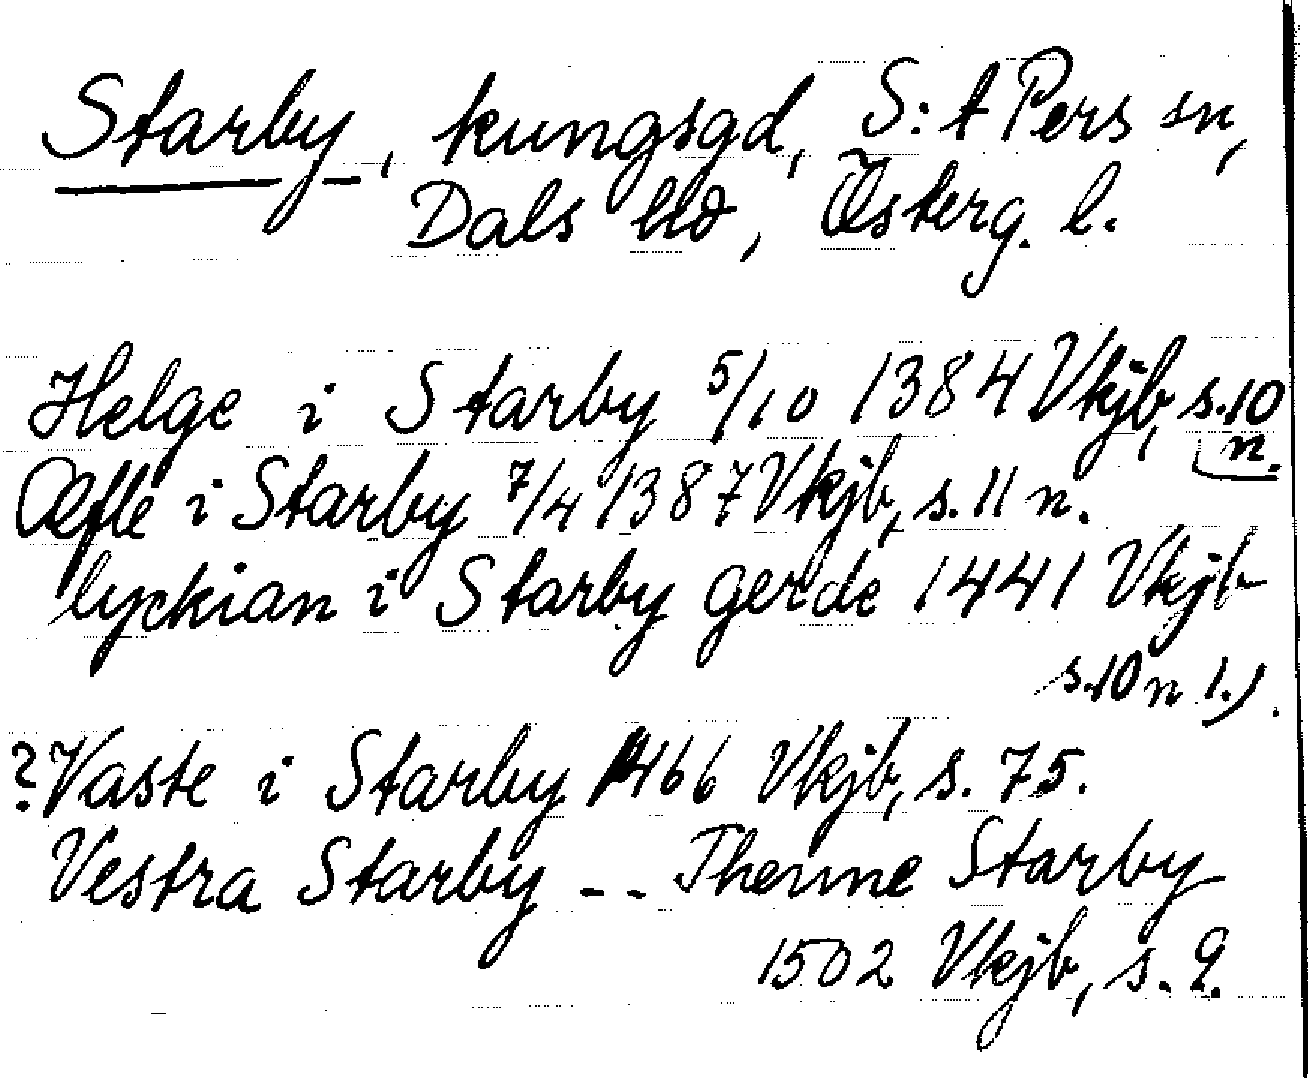 Starby, kungsgd, S:t Pers sn,
Dals hd, Österg. l.
Helge i Starby 5/10 1384 Vkjb, s. 10
n.
Œfle i Starby 7/4 1387 Vkjb, s. 11 n.
lyckian i Starby gerde 1441 Vkjb
s. 10 n 1.).
? Vaste i Starby 1466 Vkjb, s. 75.
Vestra Starby -- Thenne Starby
1502 Vkjb, s. 9.